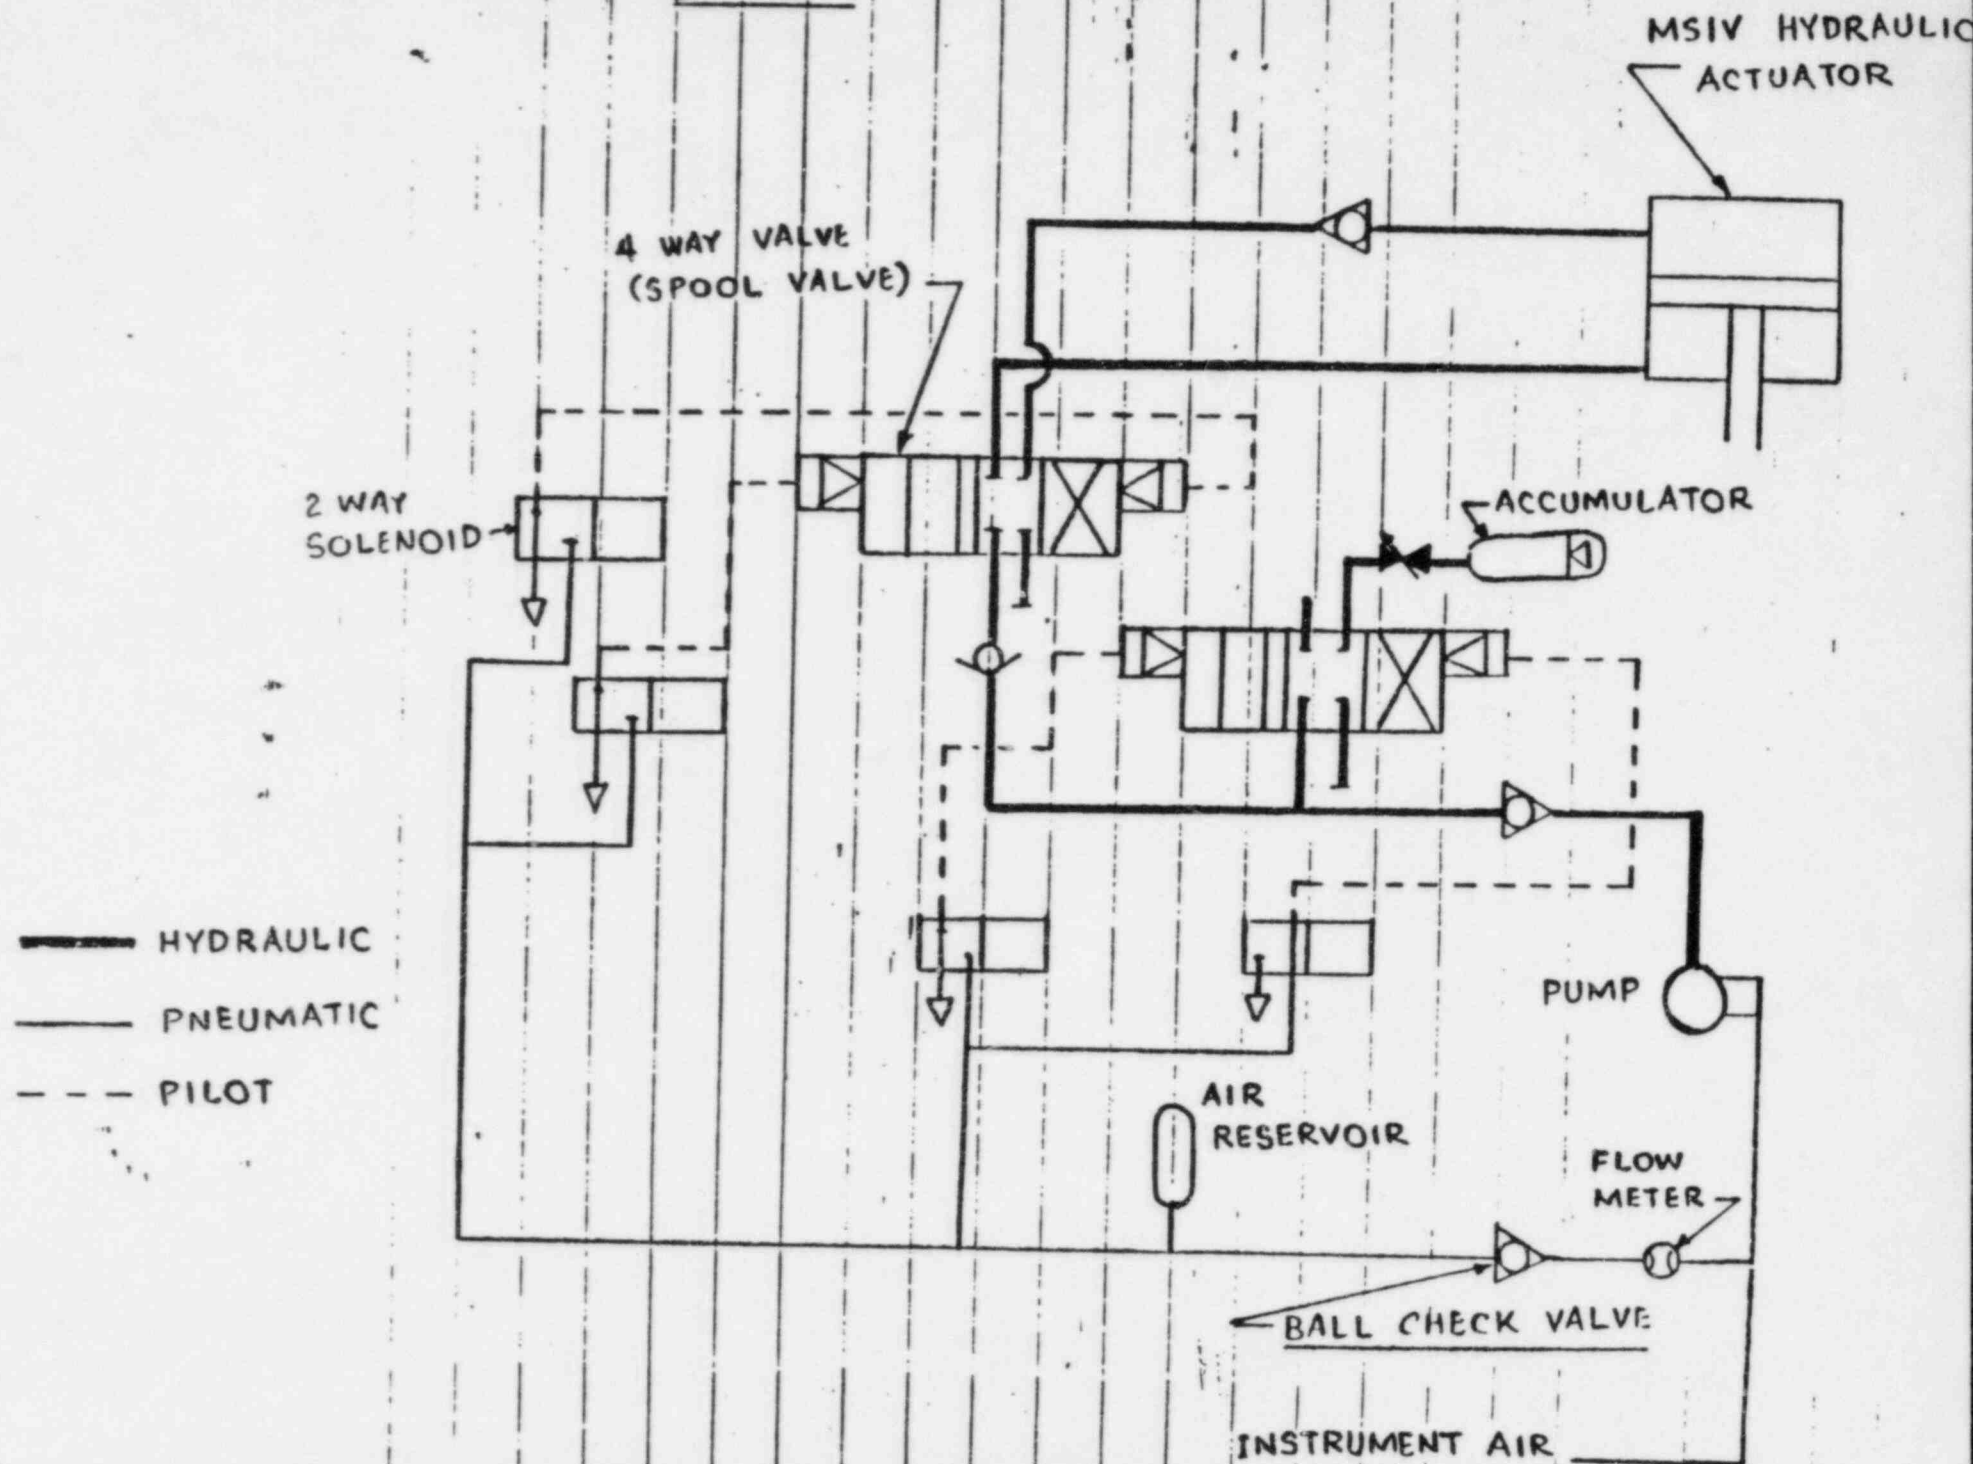 MSIV HYDRAULIC
ACTUATOR
4 WAY VALVE
(SPOOL VALVE)
2 WAY
SOLENOID
ACCUMULATOR
HYDRAULIC
PNEUMATIC
PILOT
PUMP
AIR
RESERVOIR
FLOW
METER
BALL CHECK VALVE
INSTRUMENT AIR